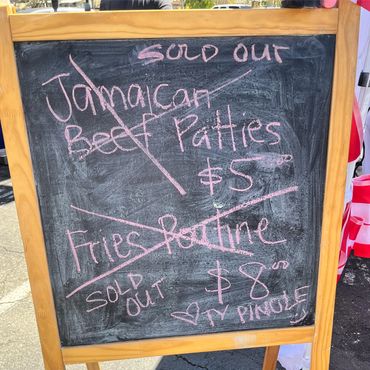 SOLD OUT
Jamaican
Beef Patties
$5⁰⁰
Fries Poutine
SOLD OUT
$8⁰⁰
♡ TY PINOLE